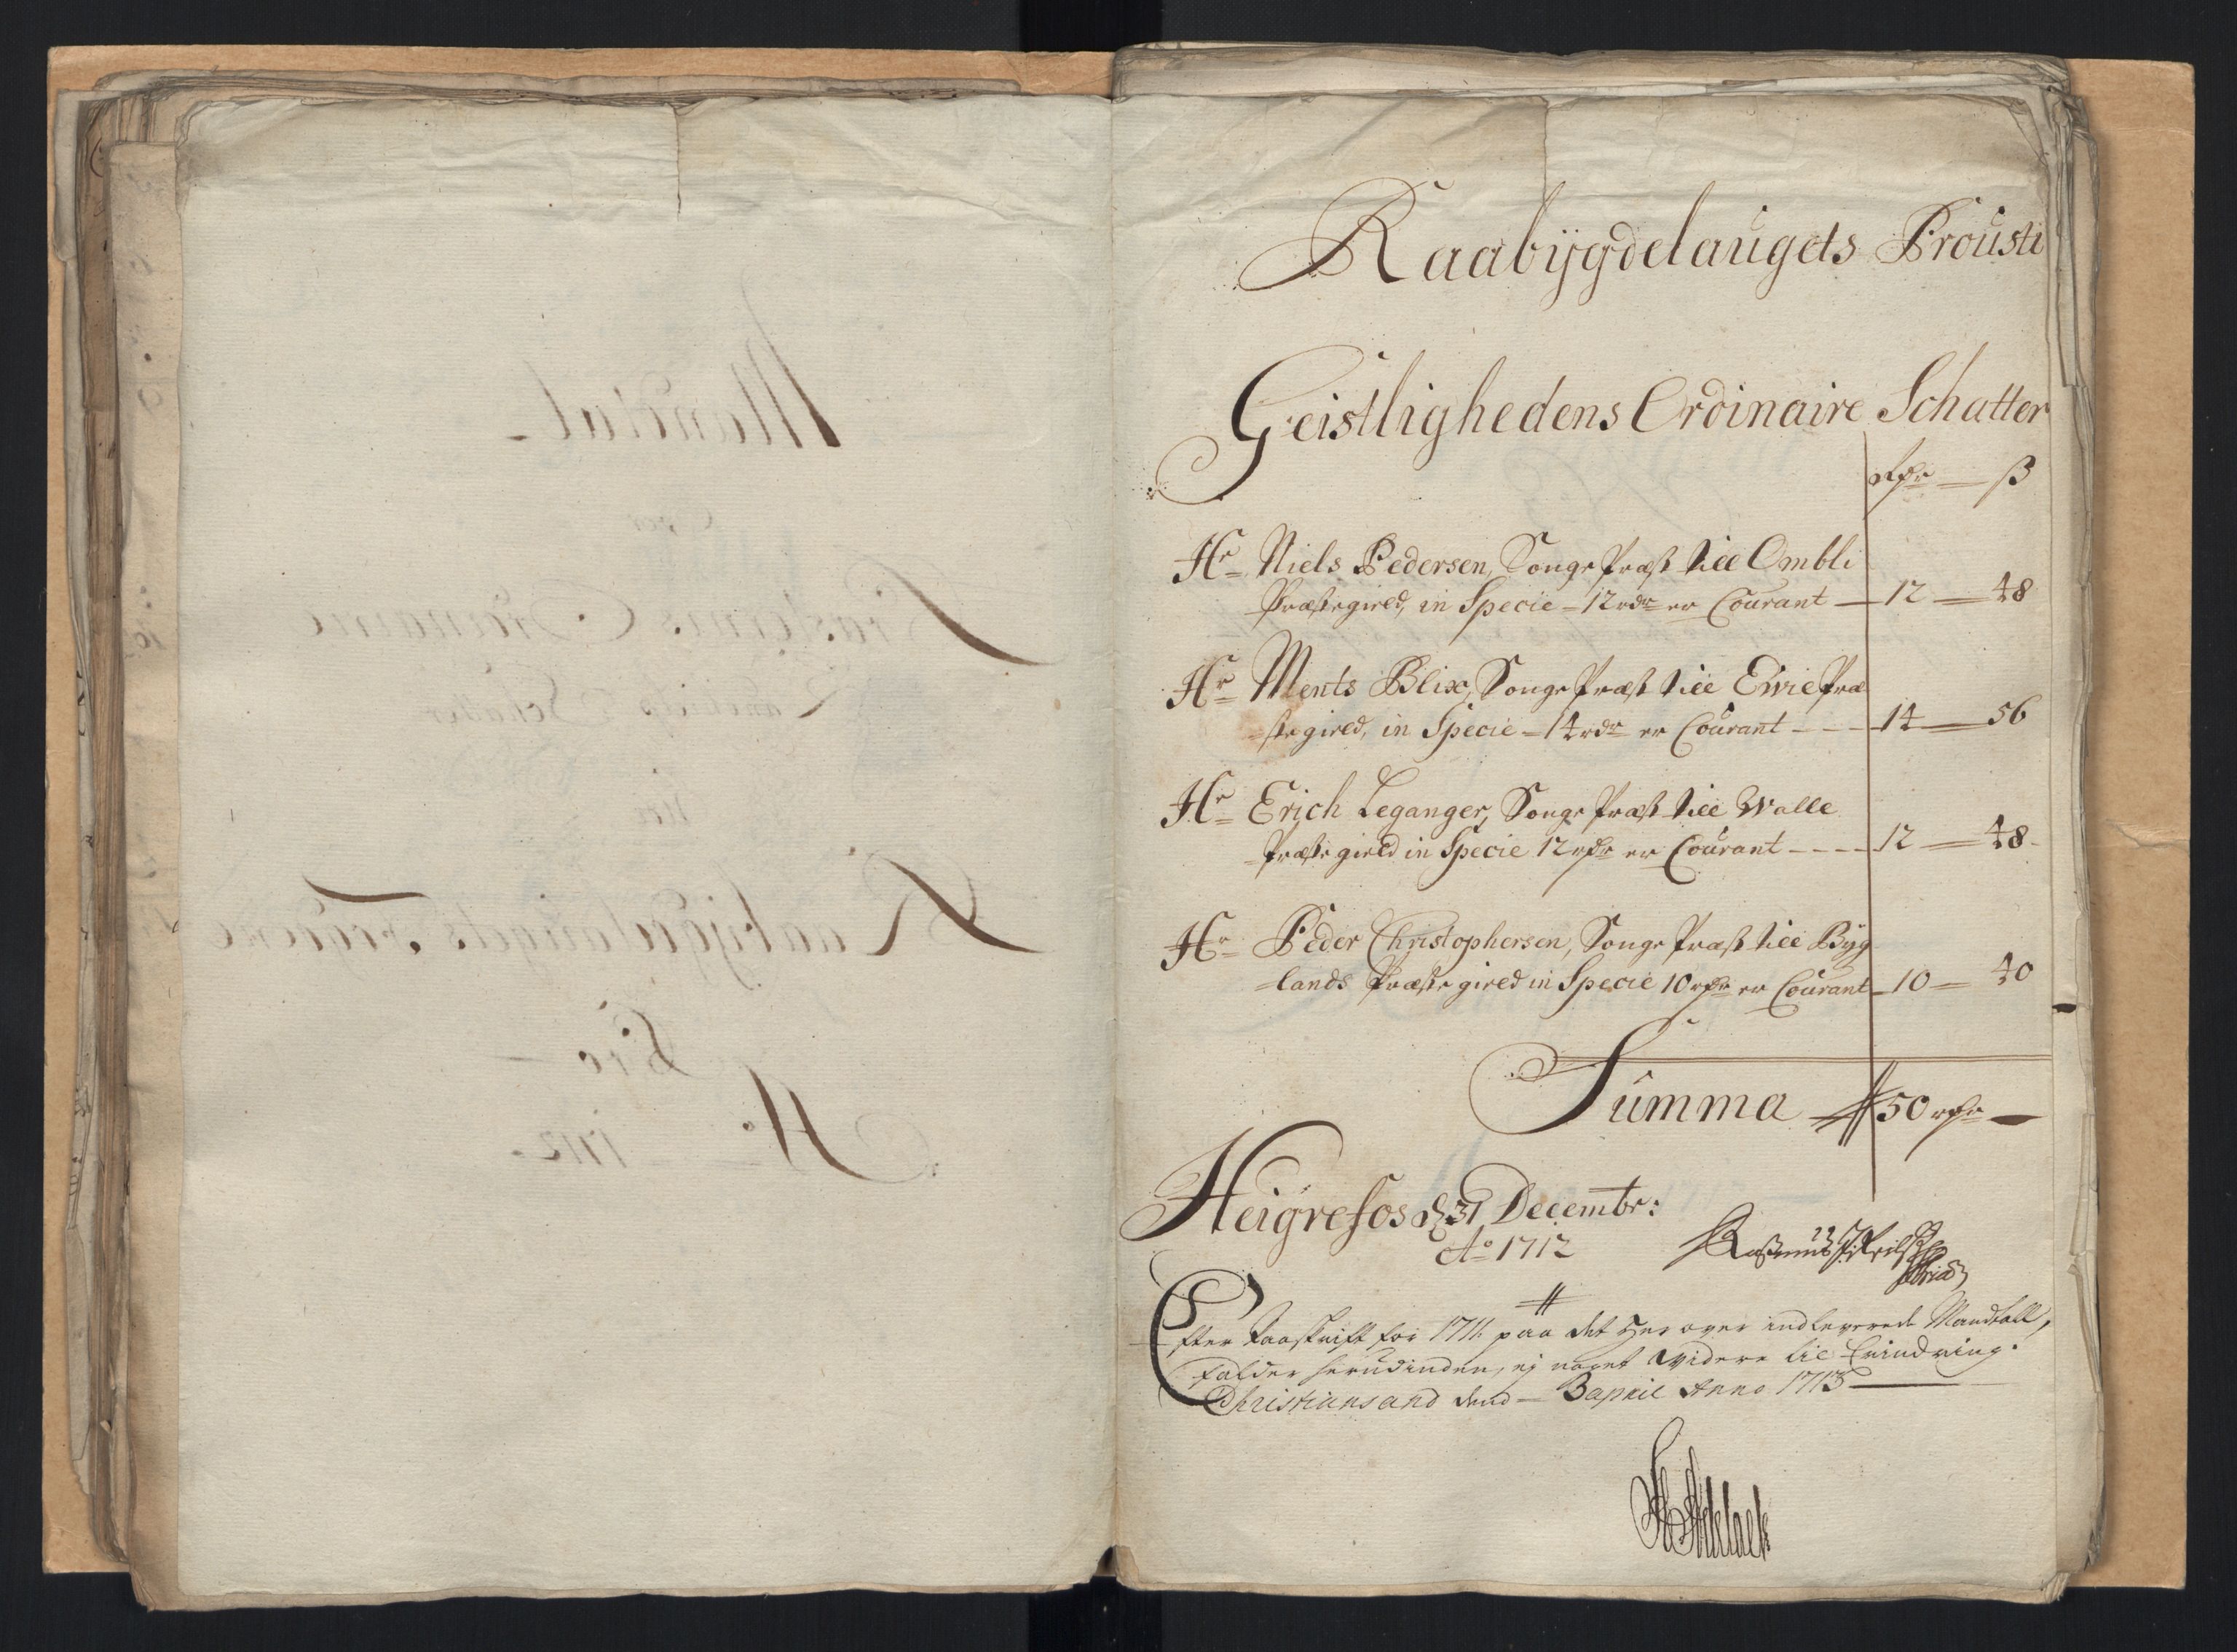 Raabÿgdelaugets Prousti
Geistlighedens Ordinaire Schatter
rdr ß
Hr Niels Pedersen, Sogne Præst till Ombli
Præstegield, in Specie - 12 rdr er Courant 12 48
Hr Ments Blix, Sogne Præst till Ewie Præ
stegield, in Specie - 14 rdr er Courant 14 56
Hr Erich Leganger, Sogne Præst till Walle
Præstegield in Specie 12 rdr er Courant 12 48
Hr Peder Christophersen, Sogne Præst till Byg
lands Præstegield in Specie 10 rdr er Courant 10 40
Summa 50 rdr
Heigrefos d 31 Decembr:
Ao 1712
Efter Paaskrift for 1711 paa det her over indleverede Mandtall,
falder herudinden, ej noget widere til Erindring.
Christiansand dend 3 aprill Anno 1713